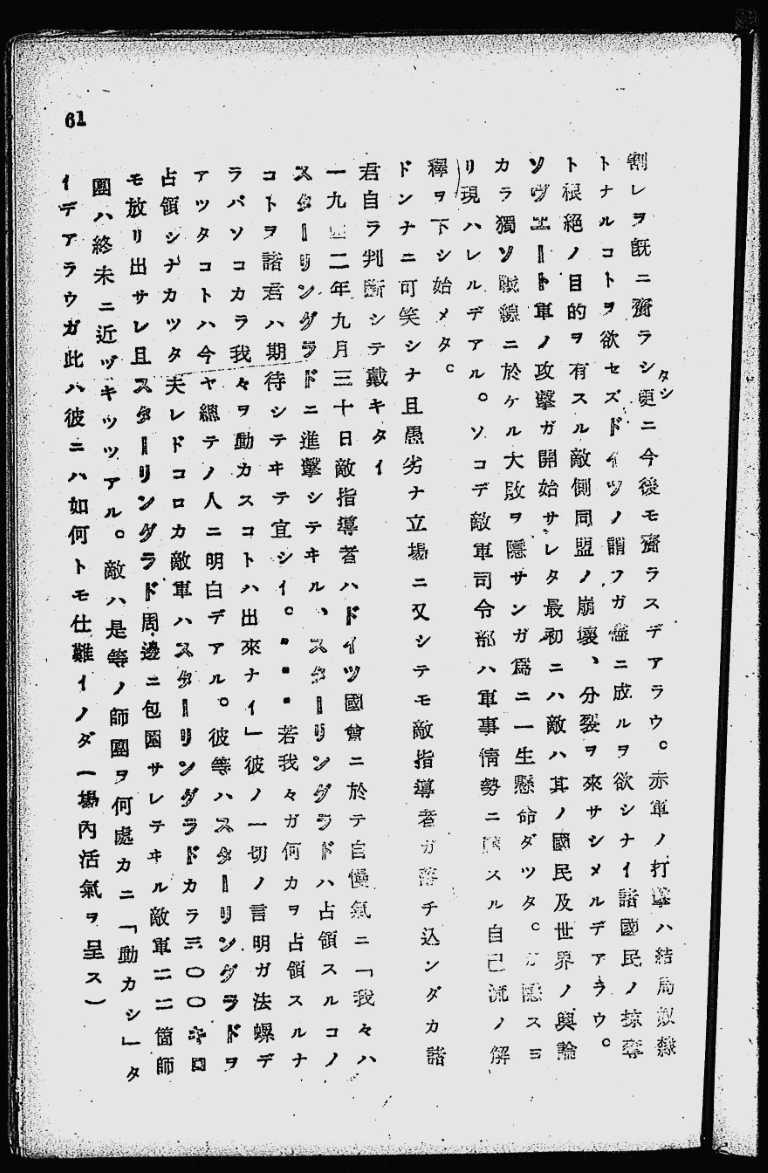 61
割レヲ既ニ齎ラシ更ニ今後モ齎ラスデアラウ。赤軍ノ打撃ハ結局奴隸
タシ
トナルコトヲ欲セズドイツノ謂フガ儘ニ成ルヲ欲シナイ諸國民ノ掠奪
ト根絶ノ目的ヲ有スル敵側同盟ノ崩壞、分裂ヲ來サシメルデアラウ。
ソヴエート軍ノ攻撃ガ開始サレタ最初ニハ敵ハ其ノ國民及世界ノ輿論
カラ獨ソ戰線ニ於ケル大敗ヲ隱サンガ爲ニ一生懸命ダツタ。ガ隱スヨ
リ現ハレルデアル。ソコデ敵軍司令部ハ軍事情勢ニスル自己流ノ解
釋ヲ下シ始メタ。
ドンナニ可笑シナ且愚劣ナ立場ニ又シテモ敵指導者ガ落チ込ンダカ諸
君自ラ判斷シテ戴キタイ
一九四二年九月三十日敵指導者ハドイツ國會ニ於テ自慢氣ニ「我々ハ
スターリングラドニ進撃シテキル、スターリングラドハ占領スルコノ
コトヲ諸君ハ期待シテヰテ宜シイ。・・・若我々ガ何カヲ占領スルナ
ラバソコカラ我々ヲ動カスコトハ出來ナイ」彼ノ一切ノ言明ガ法螺デ
アツタコトハ今ヤ總テノ人ニ明白デアル。彼等ハスターリングラドヲ
占領シナカツタ夫レドコロカ敵軍ハスターリングラドカラ三〇〇キロ
モ放リ出サレ且スターリングラド周邊ニ包圍サレテヰル敵軍二二箇師
團ハ終末ニ近ヅキツツアル。敵ハ是等ノ師團ヲ何處カニ「動カシ」タ
イデアラウガ此ハ彼ニハ如何トモ仕難イノダ（場內活氣ヲ呈ス）